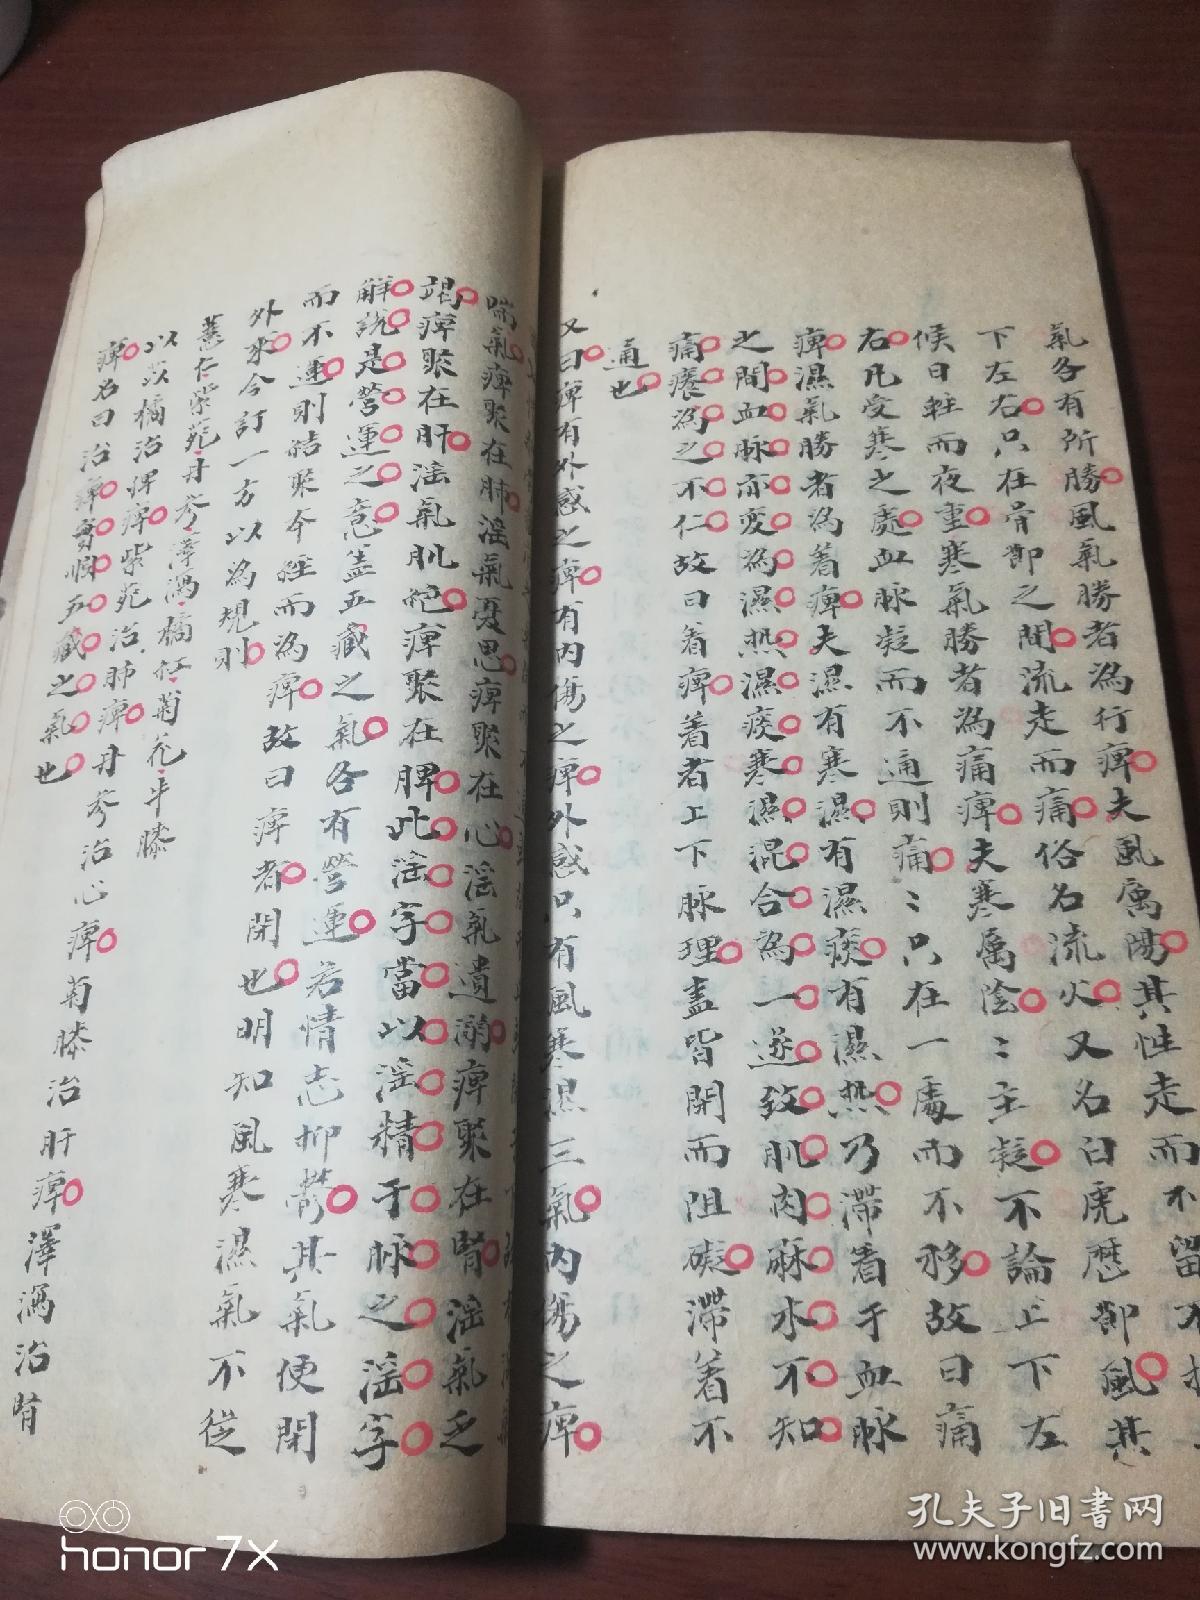 氣各有所勝風氣勝者為行痺夫風屬陽其性走而不留不
下左右只在骨節之間流走而痛俗名流火又名白虎歷節風其
候日輕而夜重寒氣勝者為痛痺夫寒屬陰〻主凝不論上下左
右凡受寒之處血脉凝而不通則痛〻只在一處而不移故曰痛
痺濕氣勝者為着痺夫濕有寒濕有濕痰有濕热乃滯着于血脉
之間血脉亦变為濕热濕痰寒濕混合為一遂致肌肉麻木不知
痛癢為之不仁故曰着痺着者上下脉理盡皆閉而阻礙滯着不
通也
又曰痺有外感之痺有内傷之痺外感只有風寒濕三氣内傷之痺
喘氣痺聚在肺淫氣憂思痺聚在心淫氣遺溺痺聚在腎淫氣乏
竭痺聚在肝淫氣肌絶痺聚在脾此淫字當以淫精于脉之淫字
解說是營運之意盖五藏之氣各有營運若情志抑鬱其氣便閉
而不運則結聚今經而為痺故曰痺者閉也明知風寒濕氣不從
外來今訂一方以為規則
薏仁紫菀丹參澤瀉橘紅菊花牛膝
以苡橘治脾痺紫菀治肺痺丹參治心痺菊膝治肝痺澤瀉治腎
痺名曰治痺實順五藏之氣也
honor 7X
孔夫子旧书网
www.kongfz.com